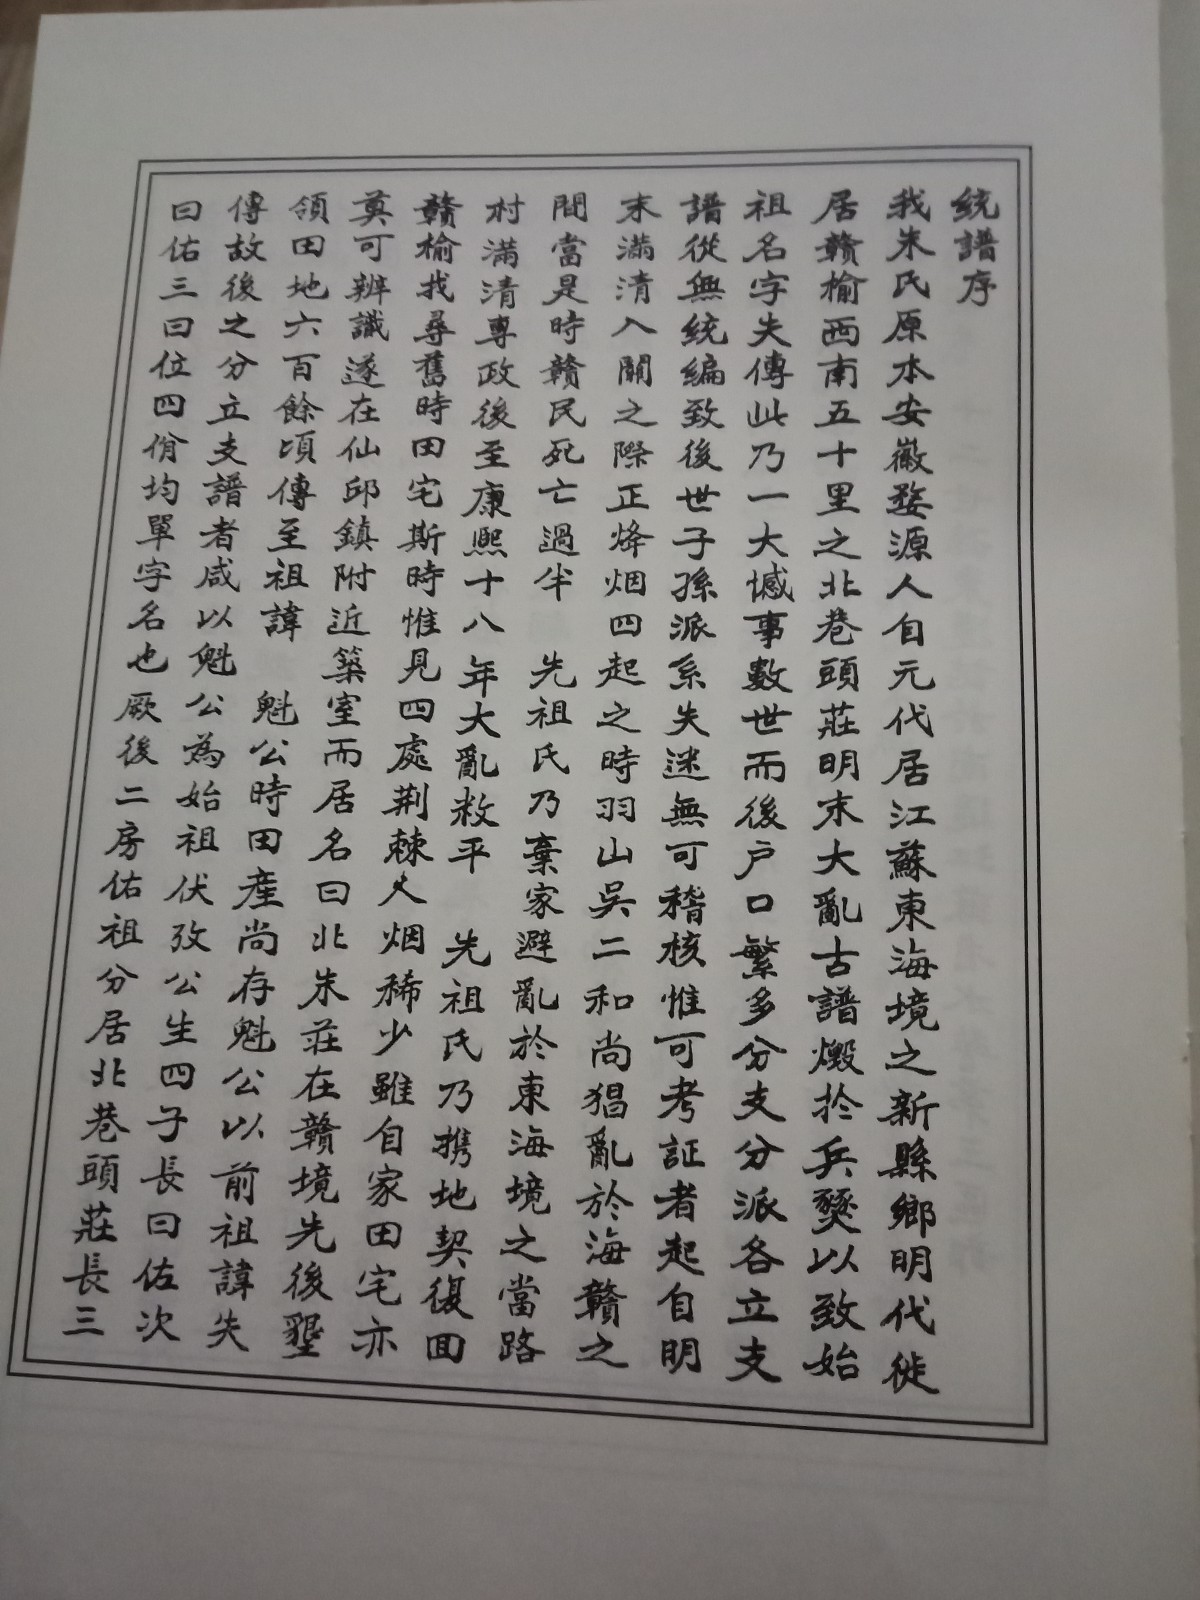 統譜序
我朱氏原本安徽婺源人自元代居江蘇東海境之新縣鄉明代徙
居贛榆西南五十里之北巷頭莊明末大亂古譜燬於兵燹以致始
祖名字失傳此乃一大憾事數世而後户口繁多分支分派各立支
譜從無統編致後世子孫派系失迷無可稽核惟可考証者起自明
末滿清入關之際正烽烟四起之時羽山吳二和尚猖亂於海贛之
間當是時贛民死亡過半　先祖氏乃棄家避亂於東海境之當路
村滿清專政後至康熙十八年大亂敉平　先祖氏乃携地契復回
贛榆找尋舊時田宅斯時惟見四處荆棘人烟稀少雖自家田宅亦
莫可辨識遂在仙邱鎮附近築室而居名曰北朱莊在贛境先後墾
領田地六百餘頃傳至祖諱　魁公時田產尚存魁公以前祖諱失
傳故後之分立支譜者咸以魁公為始祖伏攷公生四子長曰佐次
曰佑三曰位四佾均單字名也厥後二房佑祖分居北巷頭莊長三